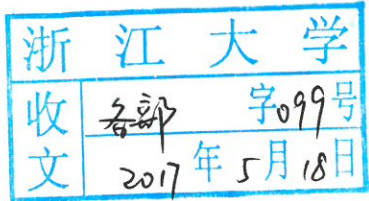 浙江大学
收文
各部 字099号
2017年5月18日